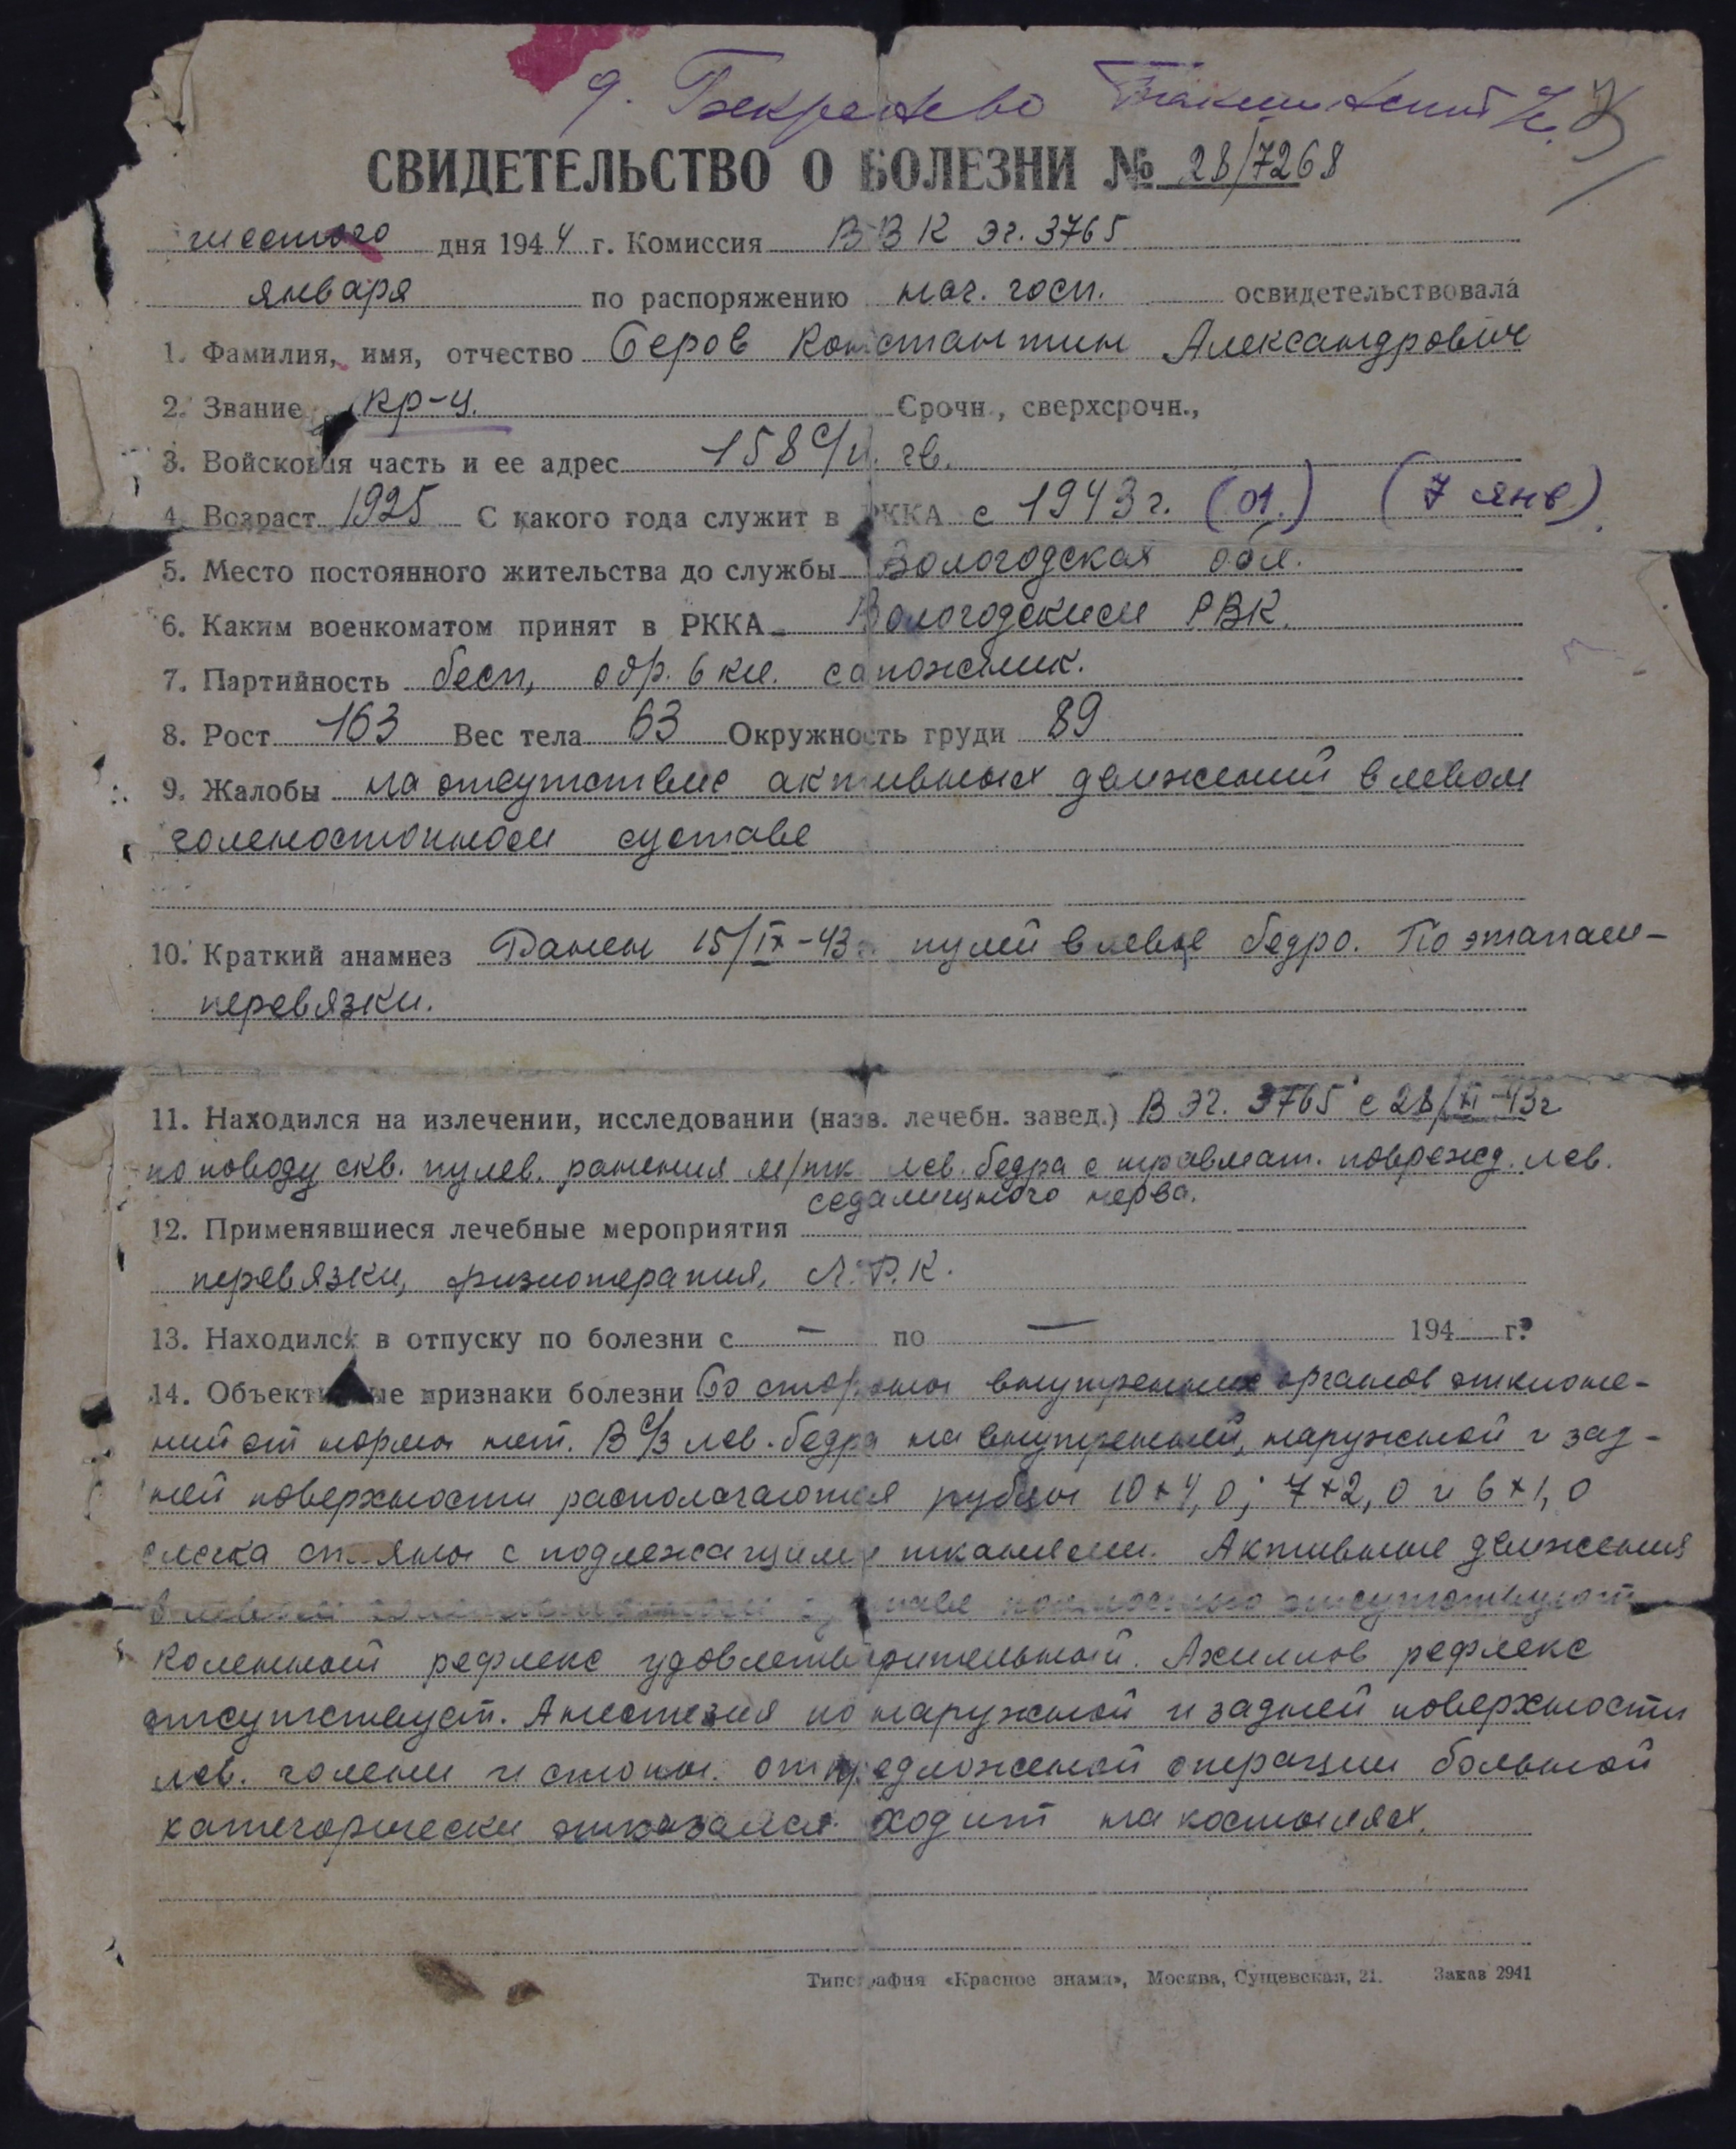 д.
СВИДЕТЕЛЬСТВО О БОЛЕЗНИ № 28/7268
шестого дня 1944 г. Комиссия ВВК ЭГ. 3765
января по распоряжению нач. госп. освидетельствовала
1. Фамилия, имя, отчество Серов Константин Александрович
2. Звание кр-ц. Срочн., сверхсрочн.,
3. Войсковая часть и ее адрес 158 с/п. гв.
4. Возраст 1925 С какого года служит в РККА с 1943 г. (01.) (7 янв)
5. Место постоянного жительства до службы Вологодская обл.
6. Каким военкоматом принят в РККА Вологодским РВК.
7. Партийность бесп, обр. 6 кл. сапожник.
8. Рост 163 Вес тела 63 Окружность груди 89
9. Жалобы на отсутствие активных движений в левом
голеностопном суставе
10. Краткий анамнез Ранен 15/IX-43г. пулей в левое бедро. По этапам-
перевязки.
11. Находился на излечении, исследовании (назв. лечебн. завед.) В ЭГ. 3765 с 28/XI-43г
по поводу скв. пулев. ранения м/тк лев. бедра с травмат. поврежд. лев.
седалищного нерва.
12. Применявшиеся лечебные мероприятия
перевязки, физиотерапия, Л.Ф.К.
13. Находился в отпуску по болезни с — по — 194 г.
14. Объективные признаки болезни Со стороны внутренних органов отклоне-
ний от нормы нет. В с/3 лев. бедра на внутренней, наружной и зад-
ней поверхности располагаются рубцы 10×4,0; 7×2,0 и 6×1,0
слегка спаяны с подлежащими тканями. Активные движения
в левом голеностопном суставе полностью отсутствуют
Коленный рефлекс удовлетворительный. Ахиллов рефлекс
отсутствует. Анестезия по наружной и задней поверхности
лев. голени и стопы. от предложенной операции больной
категорически отказался. Ходит на костылях.
Типография «Красное знамя», Москва, Сущевская, 21. Заказ 2941